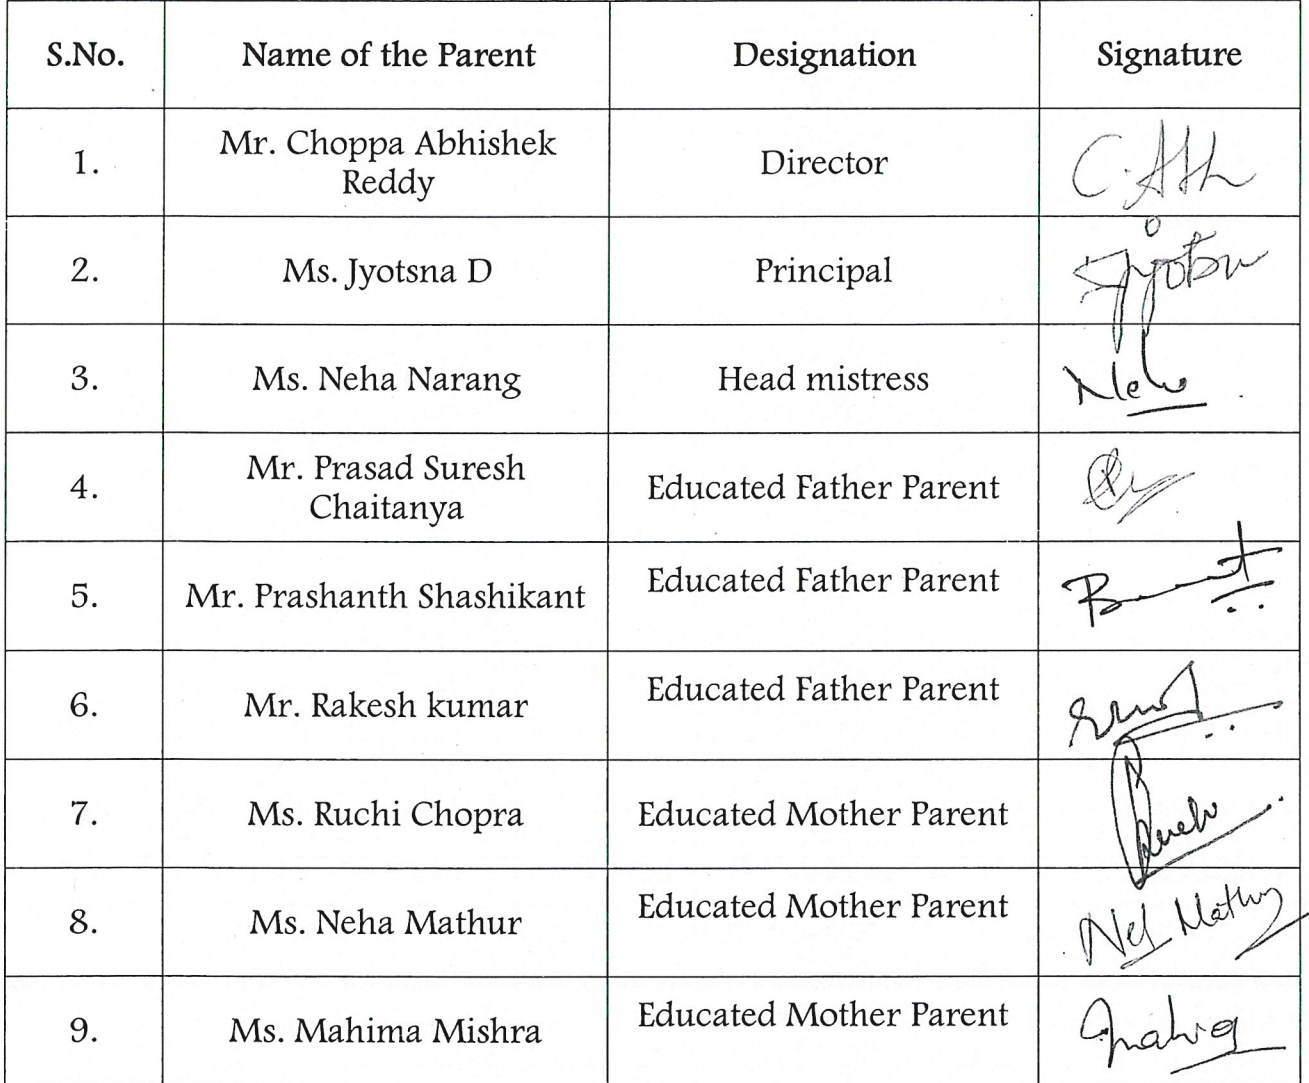 S.No. Name of the Parent Designation Signature
1. Mr. Choppa Abhishek Reddy Director
2. Ms. Jyotsna D Principal
3. Ms. Neha Narang Head mistress Neha
4. Mr. Prasad Suresh Chaitanya Educated Father Parent
5. Mr. Prashanth Shashikant Educated Father Parent
6. Mr. Rakesh kumar Educated Father Parent
7. Ms. Ruchi Chopra Educated Mother Parent
8. Ms. Neha Mathur Educated Mother Parent
9. Ms. Mahima Mishra Educated Mother Parent